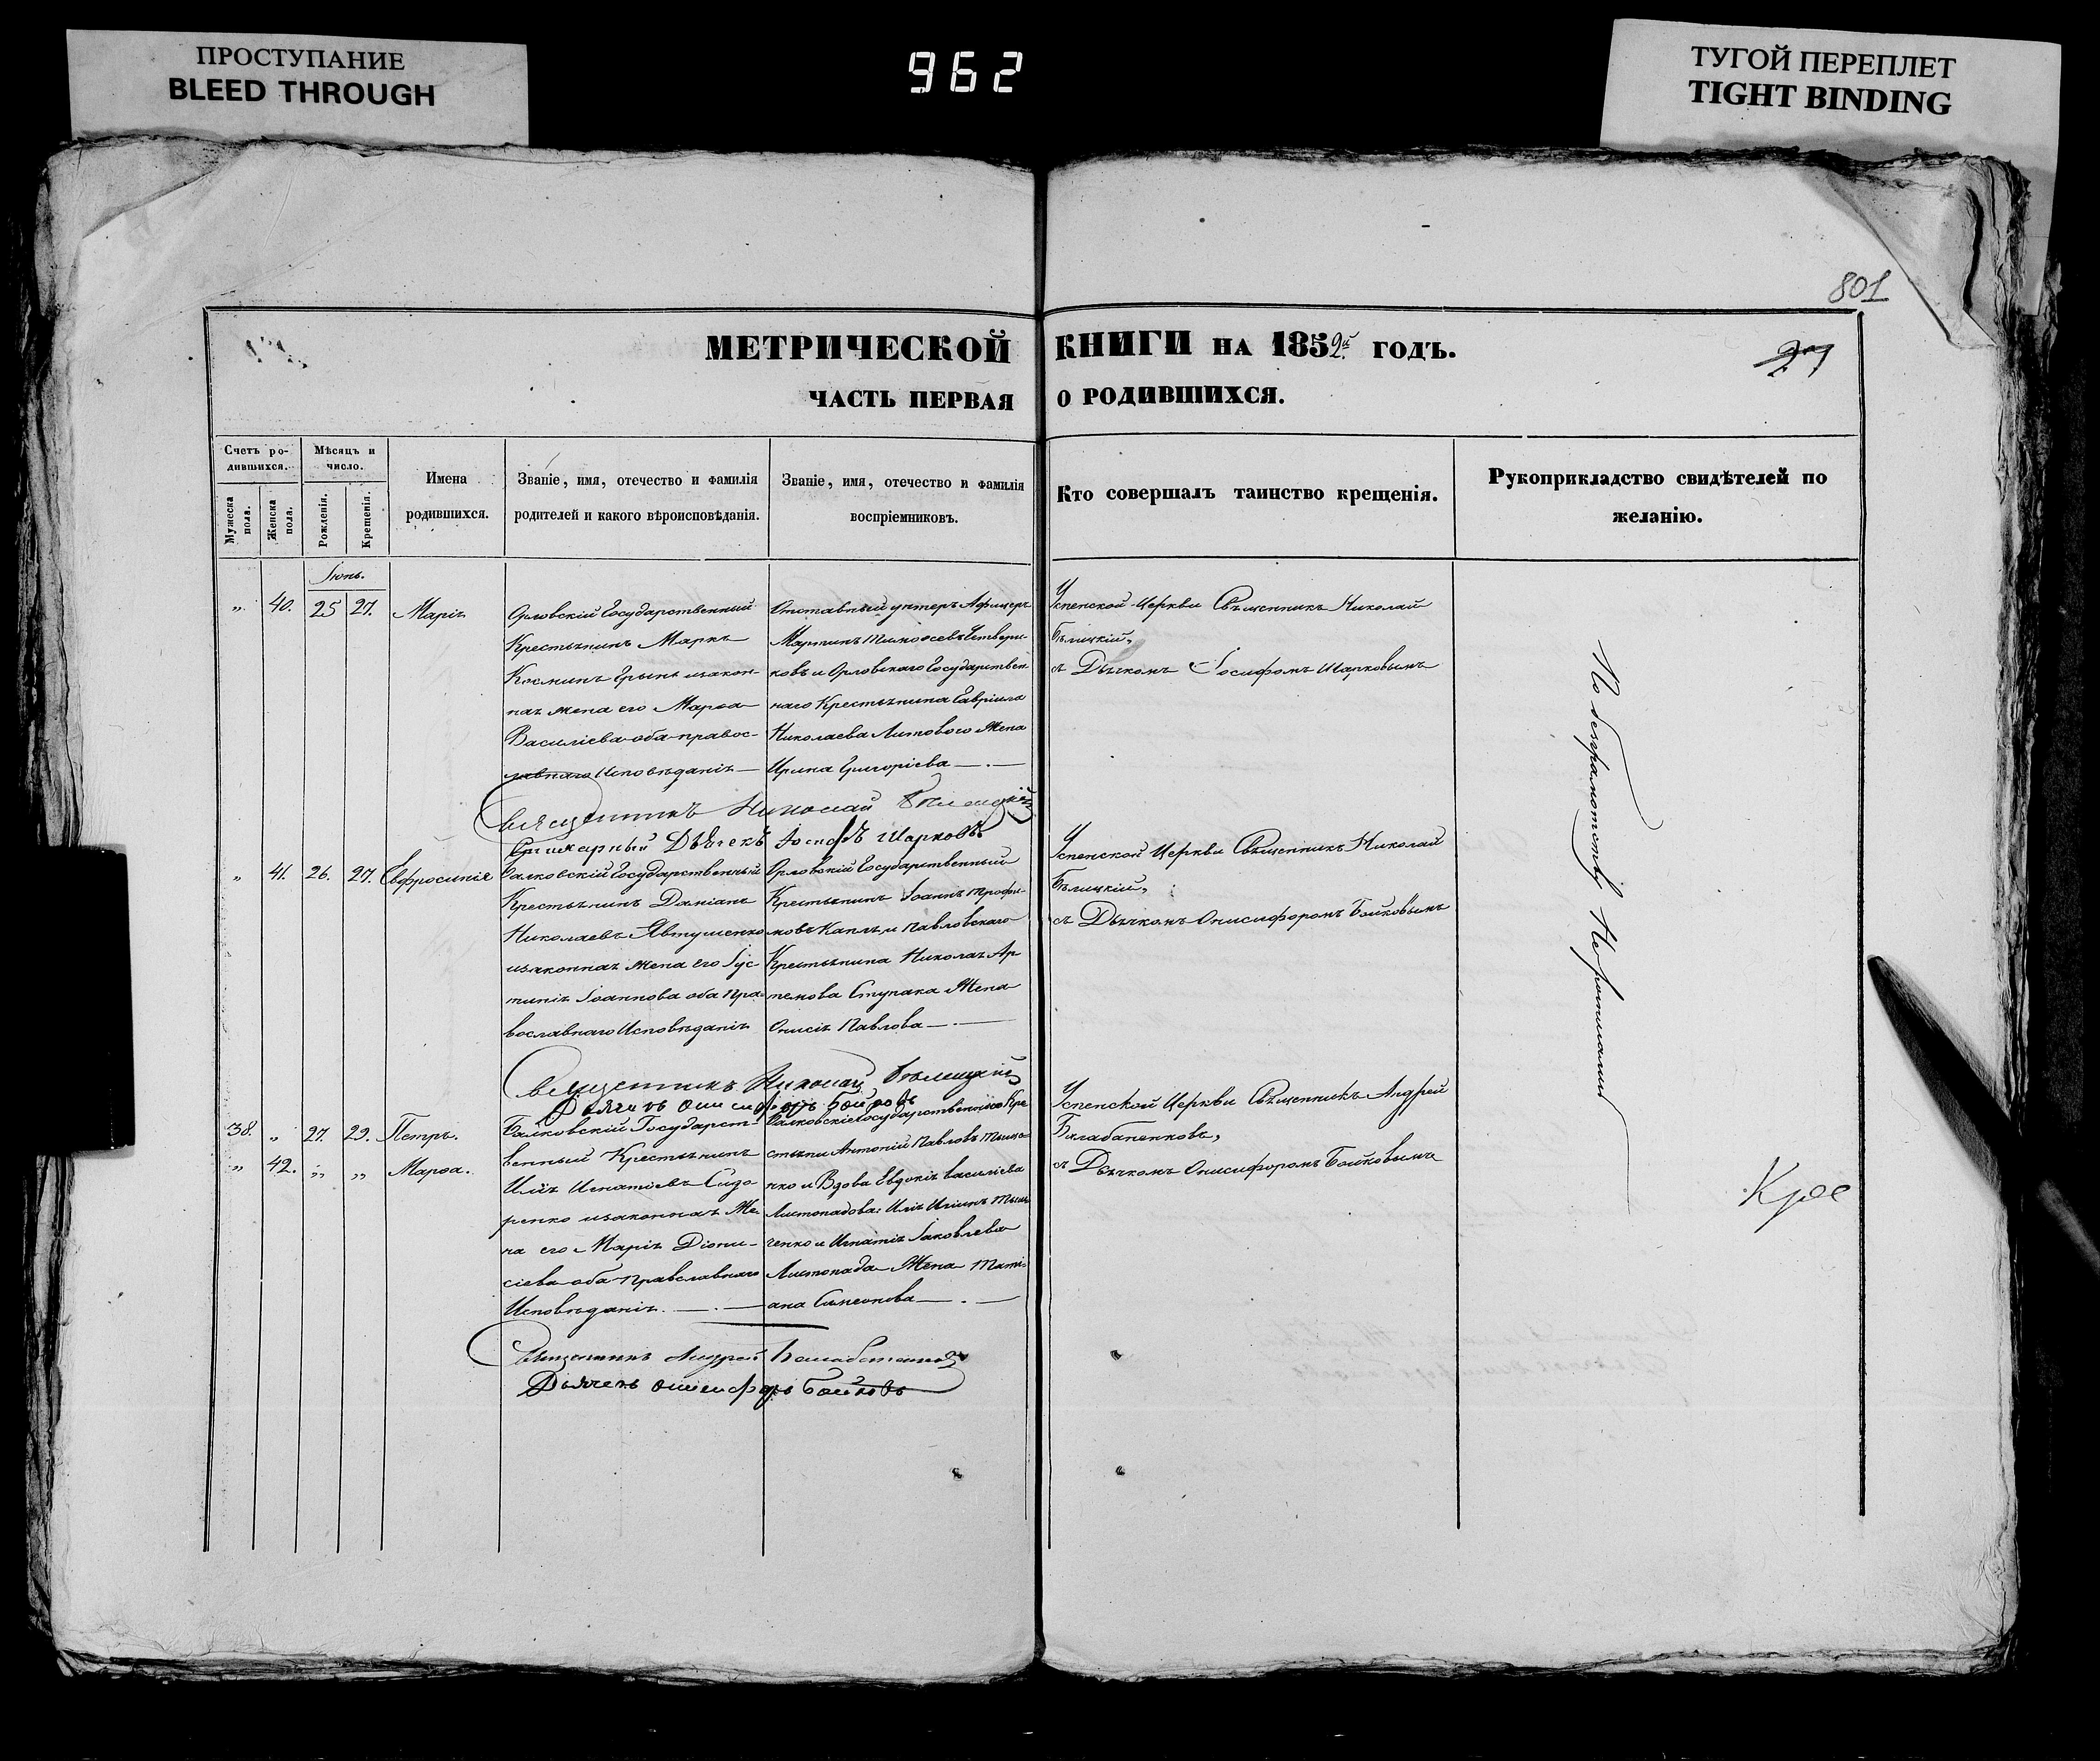 ПРОСТУПАНИЕ
BLEED THROUGH
962
ТУГОЙ ПЕРЕПЛЕТ
TIGHT BINDING
801
МЕТРИЧЕСКОЙ КНИГИ НА 1852й ГОДЪ.
ЧАСТЬ ПЕРВАЯ О РОДИВШИХСЯ.
Счетъ ро-
дившихся.
Мужеска пола.
Женска пола.
Мѣсяцъ и
число.
Рожденія.
Крещенія.
Имена
родившихся.
Званіе, имя, отечество и фамилія
родителей и какого вѣроисповѣданія.
Званіе, имя, отечество и фамилія
воспріемниковъ.
Кто совершалъ таинство крещенія.
Рукоприкладство свидѣтелей по
желанію.
Іюнь.
„ 40. 25 27. Марія
Орловскій Государственный
Крестьянинъ Марко
Косминъ изакон-
ная жена его Марѳа
Василіева оба правос-
лавнаго Исповѣданія
Отставный унтеръ Афицеръ
Мартинъ Тимоѳеевъ Четвери-
ковъ и Орловскаго Государствен
наго Крестьянина Гавріила
Николаева Литового Жена
Ирина Григоріева
Успенской Церкви Священникъ Николай
Бѣлицкій,
съ Дьячкомъ Іосифомъ Шарковымъ
Священникъ Николай Бѣлицкій
Стихарный Дьячекъ Іосифъ Шарковъ
„ 41. 26. 27. Евфросинія
Валковскій Государственный
Крестьянинъ Даміанъ
Николаевъ Явтушенко
изаконная жена его Іус-
тинія Іоаннова оба пра-
вославнаго Исповѣданія
Орловскій Государственный
Крестьянинъ Іоаннъ Трофи-
мовъ и Павловскаго
Крестьянина Николая Ар
темова Ступака Жена
Онисія Павлова
Успенской Церкви Священникъ Николай
Бѣлицкій,
съ Дьячкомъ Онисифоромъ Бойковымъ
Священникъ Николай Бѣлицкій
Дьячекъ Онисифоръ Бойковъ
38. „ 27. 29. Петръ.
„ 42. „ „ Марѳа.
Валковскій Государст-
венный Крестьянинъ
Илія Игнатіевъ Сидо-
ренко изаконная Же-
на его Марія Діони-
сіева оба Православнаго
Исповѣданія.
Валковскіе Государственные Кре
стьяни Антоній Павловъ
и Вдова Евдокія Василіева
Листопадова: Илія Иліинъ
ченко и Игнатія Іаковлева
Листопада Жена Тати-
ана Симеонова
Успенской Церкви Священникъ Андрей
Балабаненковъ,
съ Дьячкомъ Онисифоромъ Бойковымъ
Священникъ Андрей Балабаненковъ
Дьячекъ Онисифоръ Бойковъ
По безграмотству Неротписались